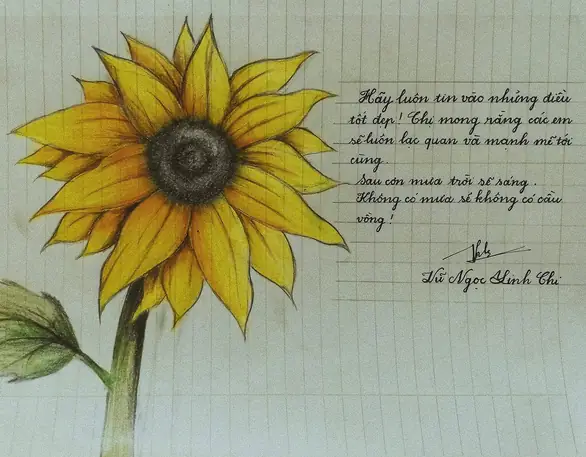 Hãy luôn tin vào những điều
tốt đẹp! Chị mong rằng các em
sẽ luôn lạc quan và mạnh mẽ tới
cùng.
Sau cơn mưa trời sẽ sáng.
Không có mưa sẽ không có cầu
vồng!
Vũ Ngọc Linh Chi